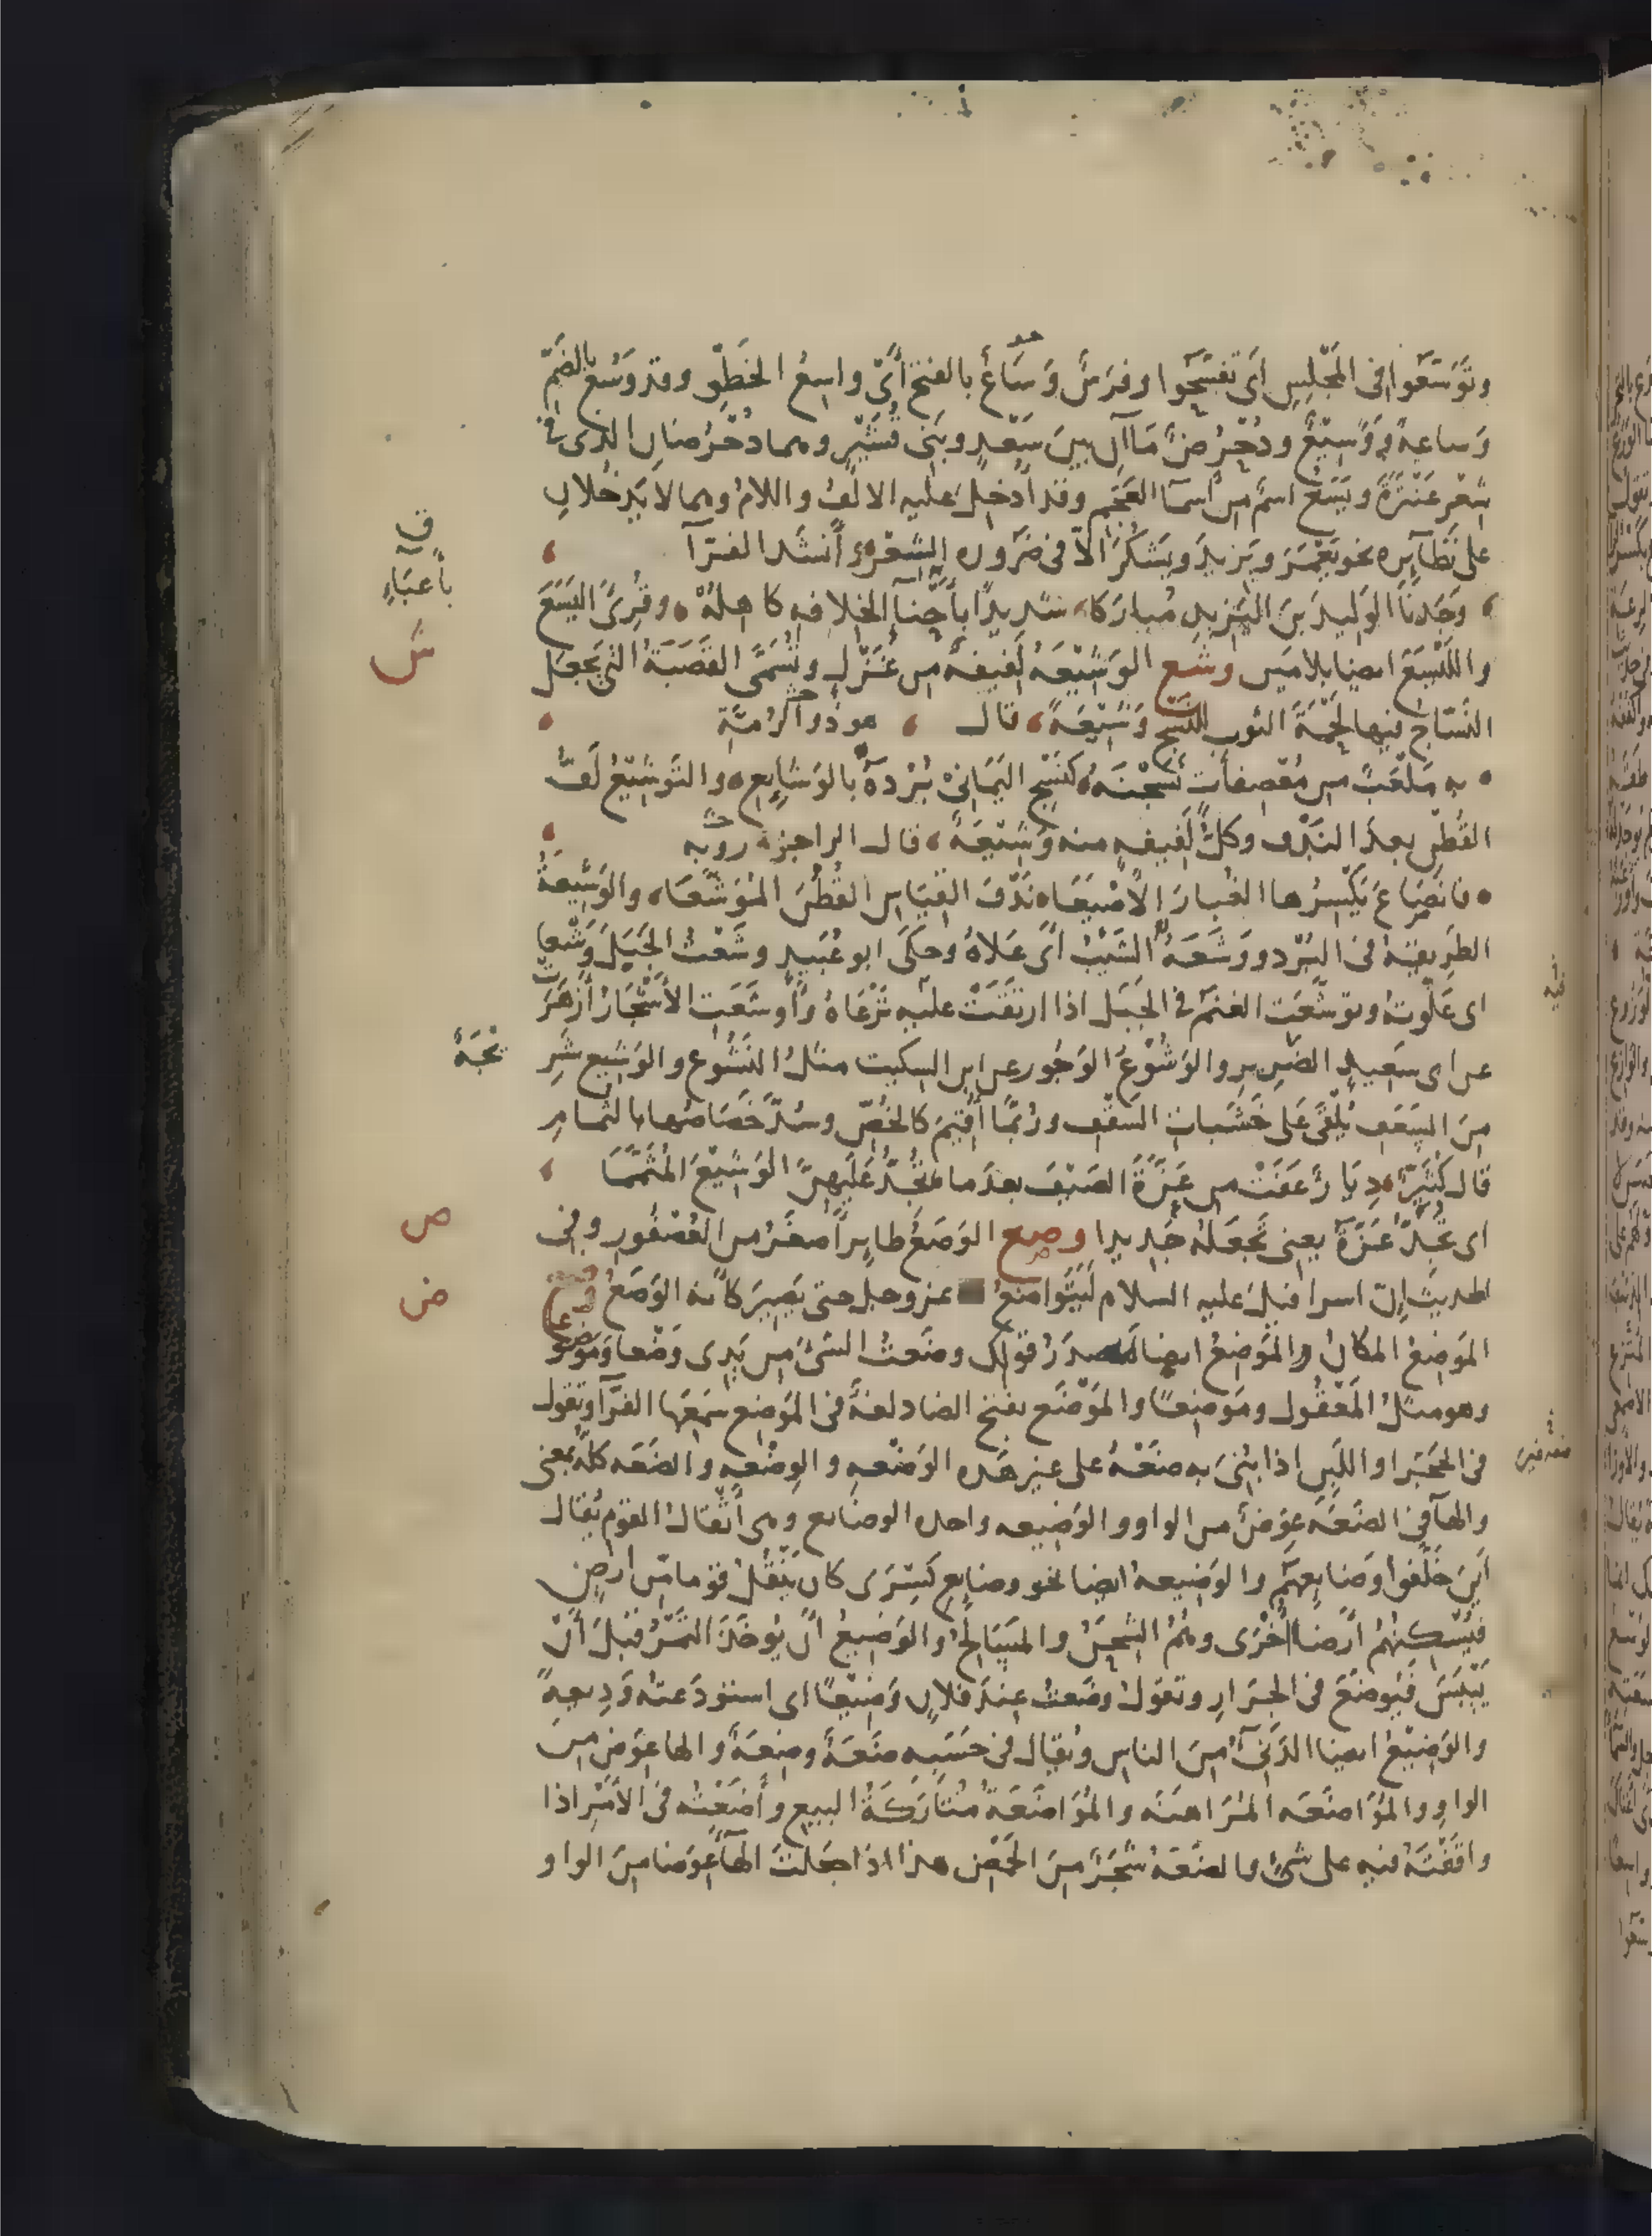 وتَوَسَّعُوا فى المَجْلِسِ اَى تَفَسَّحُوا وفرَسٌ وَسَاعٌ بالفتح أىْ واسِعُ الخَطْوِ وقد وَسُعَ بالضَمِّ
وَساعةً ووَسِيْعٌ ودُحْرُضٌ مَاآنِ بينَ سَعْدٍ وبَنِى قُشَيْرٍ وهما دحْرُضانِ الذى فى
شِعْرِ عَنْتَرَةَ ويَسَعُ اسمٌ من أسمآ العَجَمِ وقد أُدخِلَ عليه الالفُ واللامُ وهما لا يَدخُلانِ
على نَظَآيِره نحو يَعْمَرَ ويَزيدَ ويَشكُرَ الّا فى ضَروره الشِعْرِ وأنشَد الفرّآ
وَجَدنَا الوَليدَ بنَ اليَزيدِ مُبارَكا شديدًا بأَحْنآ الخلافهِ كاهلُهْ وقُرِىَ اليَسَعَ
واللَّيْسَعَ ايضا بلامَين وشع الوَشِيْعَهُ لَفيفةٌ من غَزْلٍ وتُسَمَّى القَصَبَةُ التى يَجعل
النَسّاج فيها لُحْمَةَ الثوب للنَسْجِ وَشِيْعَةً قال هو ذو الرُمّةِ
به مَلْعَبٌ من مُعْصِفاتٍ نَسَجْنَهُ كنَسْجِ اليَمَانِىْ بُرْدهُ بالوَشَايِعِ والتَوشِيْعُ لَفُّ
القُطْنِ بعدَ النَدْفِ وكلُّ لَفِيفهٍ منه وَشِيْعَةٌ قال الراجز رؤبه
فانصَاعَ يَكْسِرُها الغُبارَ الأَصْيَعَا نَدْفَ القِيَاسِ القُطُنَ المُوَشَّعَا والوَشِيعَةُ
الطَرِيقةُ فى البُرْدِ ووَشَعَهُ الشَيْبُ اىْ عَلاهُ وحكَى ابو عُبَيدٍ وشَعْتُ الجَبَلَ وَشْعا
اى عَلَوتُه وتوشّعَت الغنَمُ فى الجَبَل اذا ارتقَتْ عليه تَرْعَاهُ وأوشَعَتِ الأشْجَارُ أَزْهَرَت
عن ابى سَعِيدٍ الضَرِيرِ والوَشُوْعُ الوَجُور عن ابن السكيت مثلُ النَشُوعِ والوَشيع شَرِ
نْجَةٌ
مِنَ السَعَفِ يُلْقَى عَلى خَشَباتِ السَقْفِ ورُبَّمَا اُقِيْمَ كالخُصِّ وسُدَّ خَصَاصُها بالثُمامِ
قال كُثَيِّرٌ دِيَارٌ عَفَتْ من عَزَّةَ الصَيْفَ بعدَما تُجِدُّ عَلَيهِنَّ الوَشِيْعَ المُثَمَّمَا
اى تُجِدُّ عَزّةُ يعنى تَجعَلُهُ جَديدا وصع الوَصَعُ طايرٌ أصغَرُ من العُصْفُورِ وفى
الحديثِ إنّ اسرافيلَ عليه السلام لَيَتَوَاضَعُ عز وجل حتى يَصِيرَ كأنه الوَصَعُ وضع
المَوضِعُ المكانُ والمَوضِعُ ايضا مصدَرُ قولك وضَعتُ الشىَ من يَدِى وَضْعا ومَوضوعا
وهو مثلُ المَعْقُول ومَوضِعًا والمَوْضَع بفتح الضاد لغةٌ فى المَوضِع سَمِعَها الفَرّآ وتقول
فى الحَجَر او اللَبِن اذا بُنِىَ به ضَعْهُ على غير هَذه الوَضْعهِ والوِضْعهِ والضَعَه كلُّه بمعنى
والهآ فى الضَعَة عِوَضٌ من الواو والوَضيعه واحده الوضايع وهى أثْقالُ القوْم يُقال
أينَ خَلَّفُوا وضَايِعهم والوَضيعهُ ايضا نحو وضايعِ كِسْرَى كان يَنْقُلُ قوما من ارضٍ
فيُسْكِنُهُمْ ارْضا أُخْرَى وهُمُ الشِحَنُ والمَسَالِحُ والوَضيعُ أن يُوخَذَ التَمْرُ قبلَ أنْ
يَيْبَسَ فَيُوضَعَ فى الجِرَارِ وتقولُ وضَعتُ عندَ فلانٍ وَضِيْعًا اى استَودَعتُه وَدِيعةً
والوَضِيْعُ ايضا الدَنِىُّ مِنَ الناسِ ويُقال فى حَسَبِه ضَعَةٌ وضِعَةٌ والها عِوَض مِنَ
الواوِ والمُوَاضَعَه المُرَاهنَه والمُوَاضَعَةُ مُتَارَكَةُ البيعِ وأضَعْتُه فى الأمْرِ اذا
وافَقْتَهُ فيه على شىءٍ والضَعَهُ شَجَرٌ مِنَ الحَمْضِ هذا اذا جَعلتَ الهآ عِوَضا مِنَ الواو
ق
بأعبَاءِ
ش
ص
ض